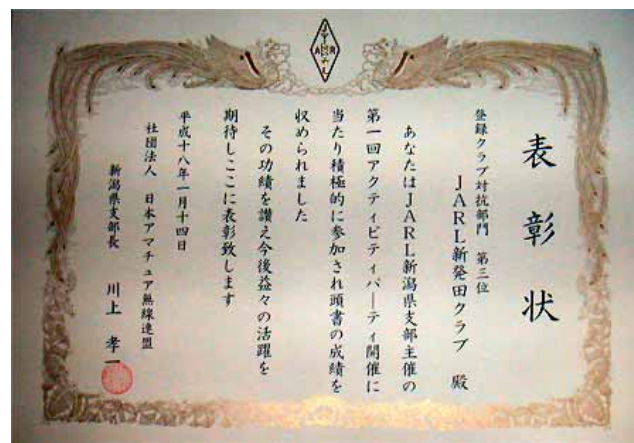 表彰状
登録クラブ対抗部門 第三位
JARL新発田クラブ 殿
あなたはJARL新潟県支部主催の
第一回アクティビティパーティ開催に
当たり積極的に参加され頭書の成績を
収められました
その功績を讃え今後益々の活躍を
期待しここに表彰致します
平成十八年一月十四日
社団法人 日本アマチュア無線連盟
新潟県支部長 川上 孝一